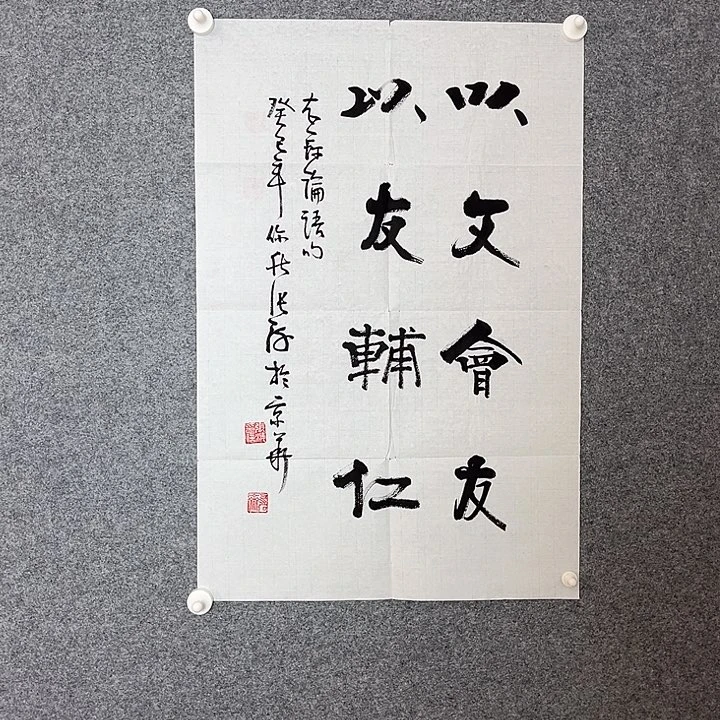 以文會友
以友輔仁
右録論語句
癸巳年於京華